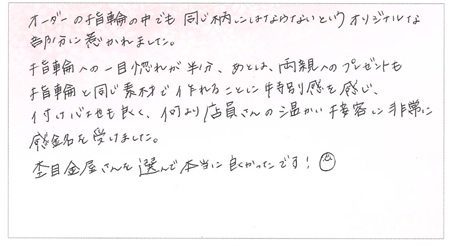 オーダーの指輪の中でも同じ柄にはならないというオリジナルな
部分に惹かれました。
指輪への一目惚れが半分、あとは、両親へのプレゼントも
指輪と同じ素材で作れることに特別感を感じ、
付け心地も良く、何より店員さんの温かい接客に非常に
感銘を受けました。
杢目金屋さんを選んで本当に良かったです！